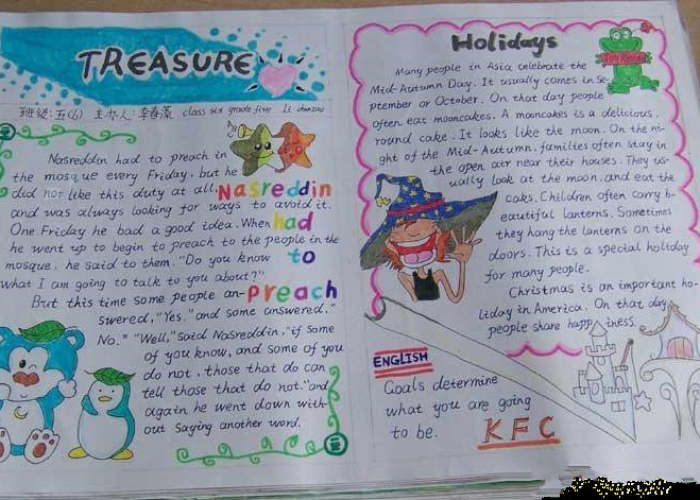 TREASURE
班级:五(6) 主办人:李春 class six grade five Li
Nasreddin had to preach in
the mosque every Friday, but he
did not like this duty at all,
and was always looking for ways to avoid it.
One Friday he bad a good idea. When
he went up to begin to preach to the people in the
mosque, he said to them. "Do you know
what I am going to talk to you about?"
But this time some people an-
swered, "Yes," and some answered,"
No." "Well," said Nasreddin, "if some
of you know, and some of you
do not, those that do can
tell those that do not." and
again he went down with-
out saying another word.
Nasreddin
had
to
preach
Holidays
Many people in Asia celebrate the
Mid-Autumn Day. It usually comes in Se-
ptember or October. On that day people
often eat mooncakes. A mooncakes is a delicious,
round cake. It looks like the moon. On the ni-
ght of the Mid-Autumn, families often stay in
the open air near their houses. They us-
ually look at the moon, and eat the
caks. Children often carry b-
eautiful lanterns. Sometimes
they hang the lanterns on the
doors. This is a special holiday
for many people.
Christmas is an important ho-
liday in America. On that day
people share happiness.
ENGLISH
Goals determine
what you are going
to be.
KFC